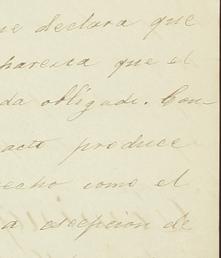 ue declara que
parezca que el
da obligado. Con-
acto produce
recho como el
a escepcion de